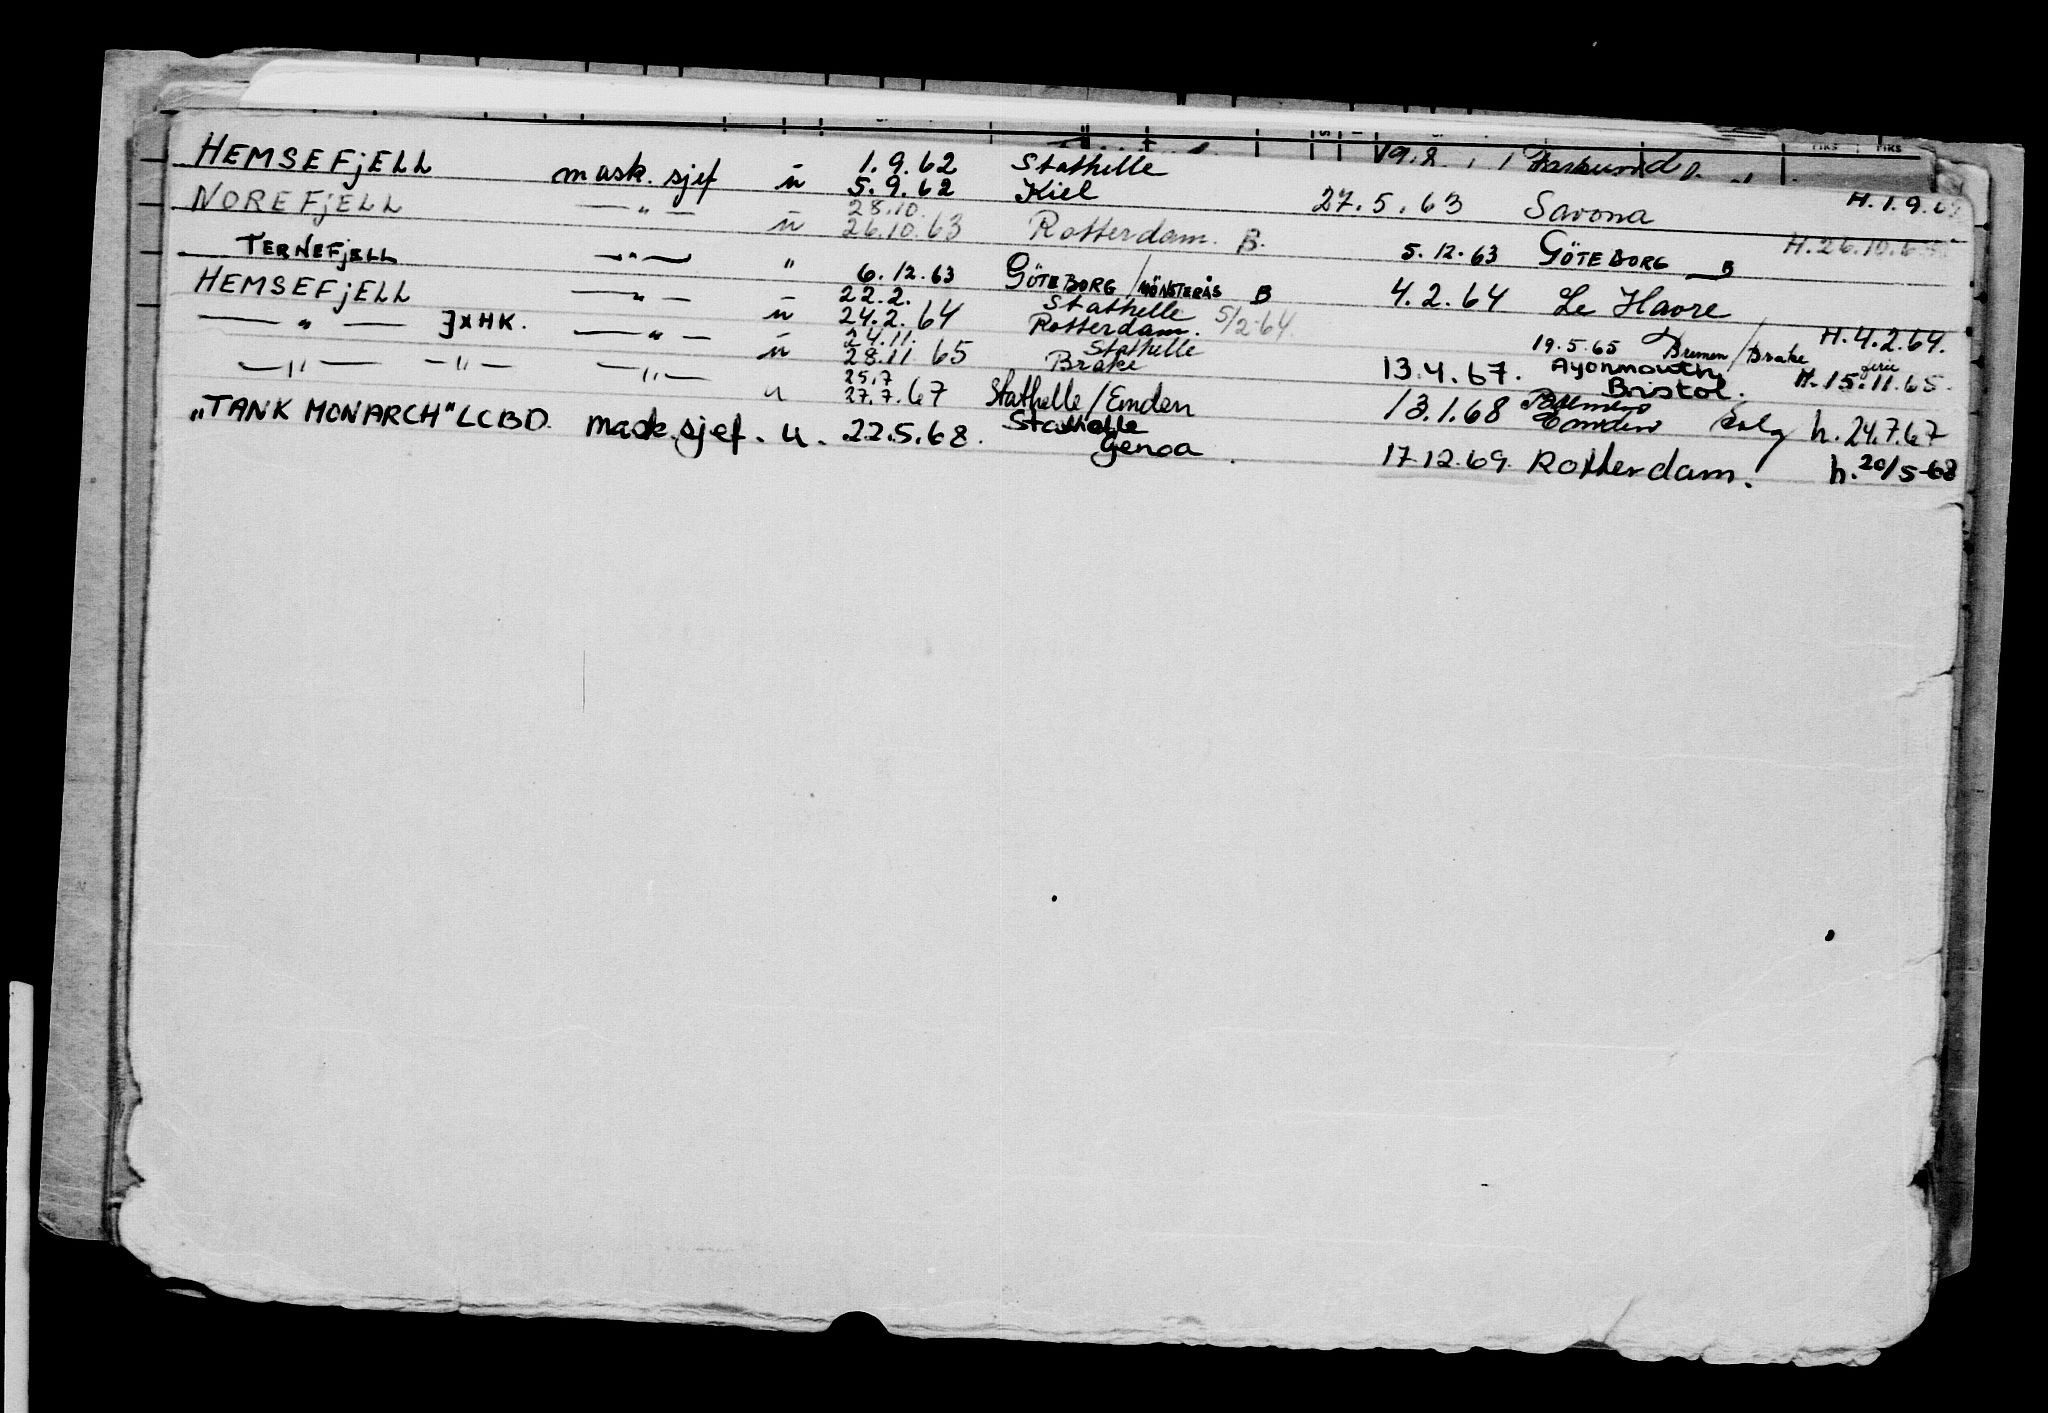 HEMSEFjELL mask. sjef u 1.9.62 Stathelle
5.9.62 Kiel 27.5.63 Savona H.1.9.6
NOREFjELL —"— u 28.10.
26.10.63 Rotterdam. B. 5.12.63 GÖTEBORG B H.26.10.6
TERNEFjELL —"— " 6.12.63 GÖTEBORG/MÖNSTERÅS B 4.2.64 Le Havre
HEMSEFjELL —"— u 22.2. Stathelle
24.2.64 Rotterdam. 5/2-64. 19.5.65 Bremen/Brake H.4.2.64.
—"— ]XHK. —"— u 24.11. Stathelle
28.11.65 Brake 13.4.67. Avonmouth Bristol. ferie H.15.11.65.
—"— —"— —"— u 25.7
27.7.67 Stathelle/Emden 13.1.68 Emden Solg h.24.7.67
„TANK MONARCH" LCBD. mask.sjef. u. 22.5.68. Stathelle
Genoa. 17.12.69. Rotterdam. h.20/5-68